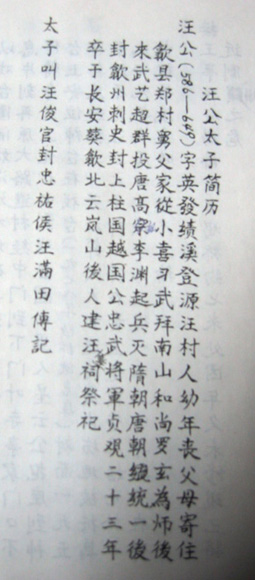 汪公太子简历
汪公(586—649)字英發績溪登源汪村人幼年丧父母寄住
歙县郑村舅父家從小喜习武拜南山和尚罗玄為师後
來武艺超群投唐髙李渊起兵灭隋朝唐朝統一後
封歙州刺史封上柱国越国公忠武將軍贞观二十三年
卒于长安葵歙北云岚山後人建汪祠祭祀
太子叫汪俊官封忠祐侯汪满田傳記